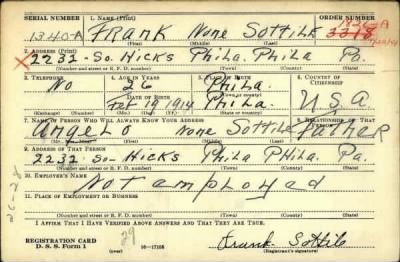 SERIAL NUMBER 1. NAME (Print) ORDER NUMBER
1340-A FRANK None SOTTILE 1836-A
3318
(First) (Middle) (Last)
2. ADDRESS (Print)
X 2232- So. HICKS PhiLa. PhiLa Pa.
(Number and street or R. F. D. number) (Town) (County) (State)
3. TELEPHONE 4. AGE IN YEARS 5. PLACE OF BIRTH 6. COUNTRY OF CITIZENSHIP
No 26 PhiLa.
DATE OF BIRTH (Town or county)
Feb 19 1914 PhiLa. U.S.A.
(Exchange) (Number) (Mo.) (Day) (Yr.) (State or country)
7. NAME OF PERSON WHO WILL ALWAYS KNOW YOUR ADDRESS 8. RELATIONSHIP OF THAT PERSON
ANGELO None SOTTILE FATHER
(Mr., Mrs., Miss) (First) (Middle) (Last)
9. ADDRESS OF THAT PERSON
2232- So- HICKS PhiLa PHiLa. Pa.
(Number and street or R. F. D. number) (Town) (County) (State)
10. EMPLOYER'S NAME
Not employed
11. PLACE OF EMPLOYMENT OR BUSINESS
(Number and street or R. F. D. number) (Town) (County) (State)
I AFFIRM THAT I HAVE VERIFIED ABOVE ANSWERS AND THAT THEY ARE TRUE.
REGISTRATION CARD
D. S. S. Form 1 16-17105 Frank Sottile
(Registrant's signature)
29